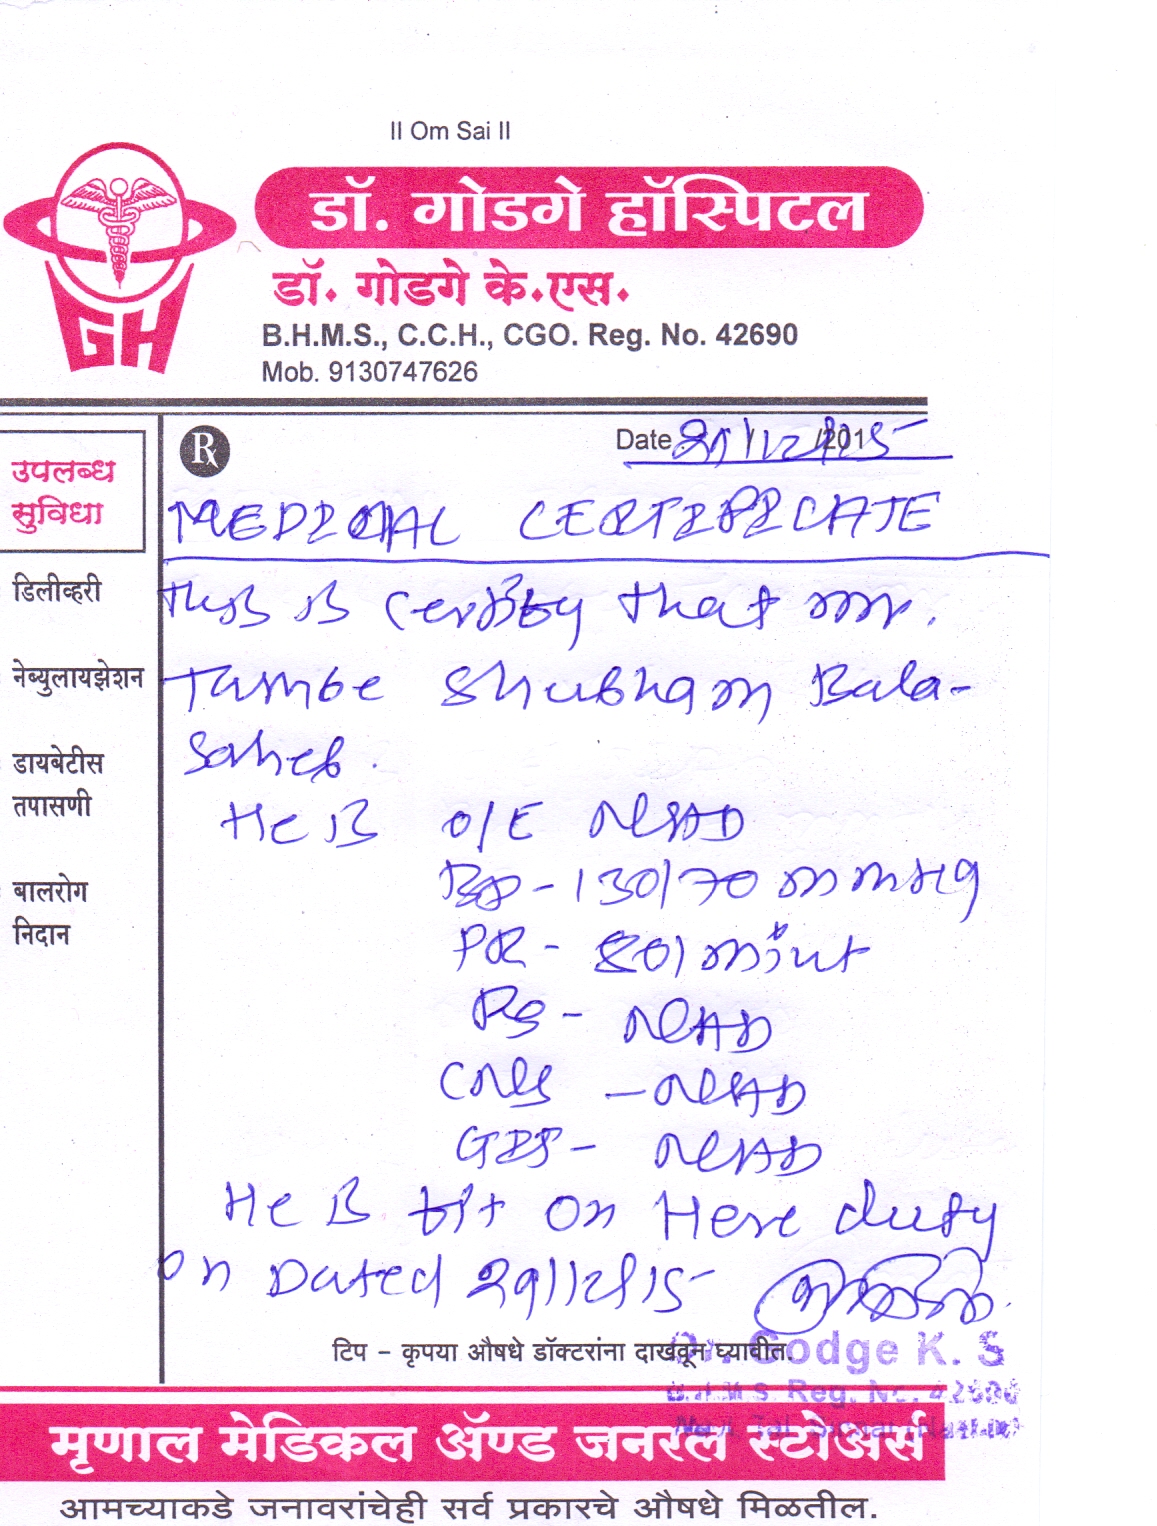 II Om Sai II
डॉ. गोडगे हॉस्पिटल
डॉ. गोडगे के.एस.
B.H.M.S., C.C.H., CGO. Reg. No. 42690
Mob. 9130747626
GH
उपलब्ध
सुविधा
डिलीव्हरी
नेब्युलायझेशन
डायबेटीस
तपासणी
बालरोग
निदान
Rx
Date 29/12/2015
MEDICAL CERTIFICATE
This is certify that mr.
Tambe Shubham Bala-
saheb.
He is O/E NAD
BP - 130/70 mmHg
PR - 80/minut
RS - NAD
CNS - NAD
GIS - NAD
He is fit on Here duty
on Dated 29/12/15
टिप - कृपया औषधे डॉक्टरांना दाखवून घ्यावीत.
Dr. Godge K. S
B.H.M.S. Reg. No. 42690
मृणाल मेडिकल ॲण्ड जनरल स्टोअर्स
आमच्याकडे जनावरांचेही सर्व प्रकारचे औषधे मिळतील.